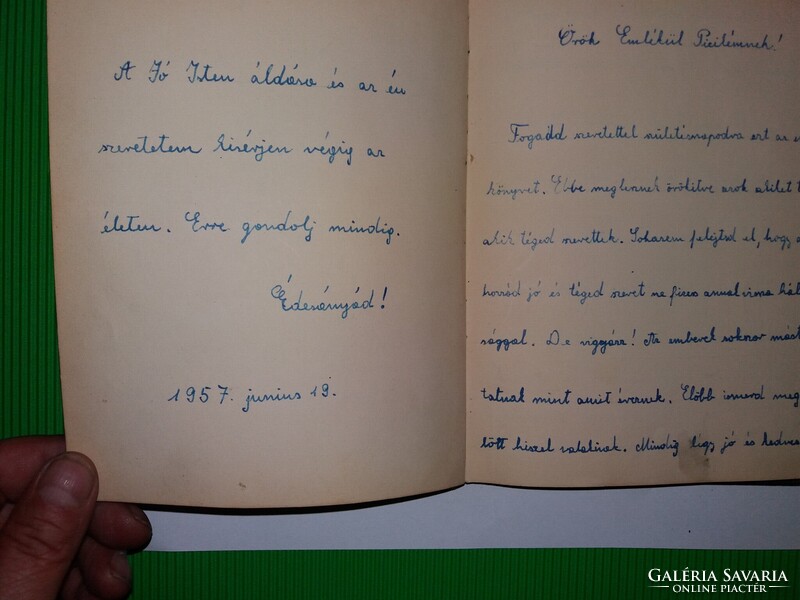 A Jó Isten áldása és az én
szeretetem kisérjen végig az
életen. Erre gondolj mindig.
Édesanyád!
1957. junius 19.
Örök Emlékül Picikémnek!
Fogadd szeretettel születésnapodra ezt az
könyvet. Ebbe meglesznek örökitve azok akiket
akik téged szerettek. Sohasem felejtsd el, hogy
hozzád jó és téged szeret ne fizess annak vissza hál
sággal. De vigyázz! Az emberek sokszor mást
tatnak mint amit éreznek. Előbb ismerd meg
lőtt hiszel valakinek. Mindig légy jó és kedves
GALÉRIA SAVARIA
ONLINE PIACTÉR